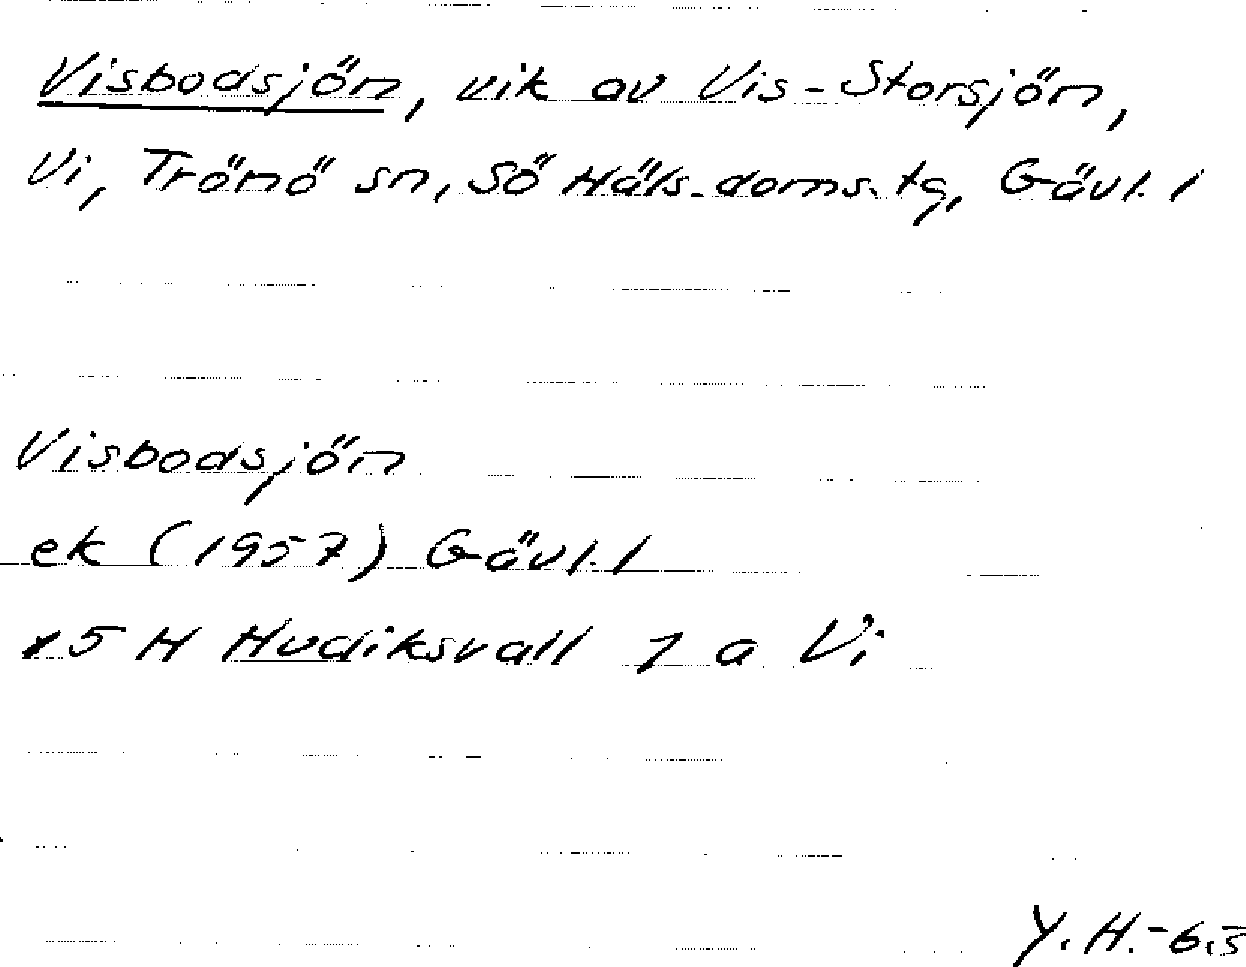 Visbodsjön, vik av Vis-Storsjön,
Vi, Trönö sn, Sö Häls. doms. tg, Gävl. l
Visbodsjön
ek (1957) Gävl. l
15 H Hudiksvall 7 a Vi
Y. H.-63